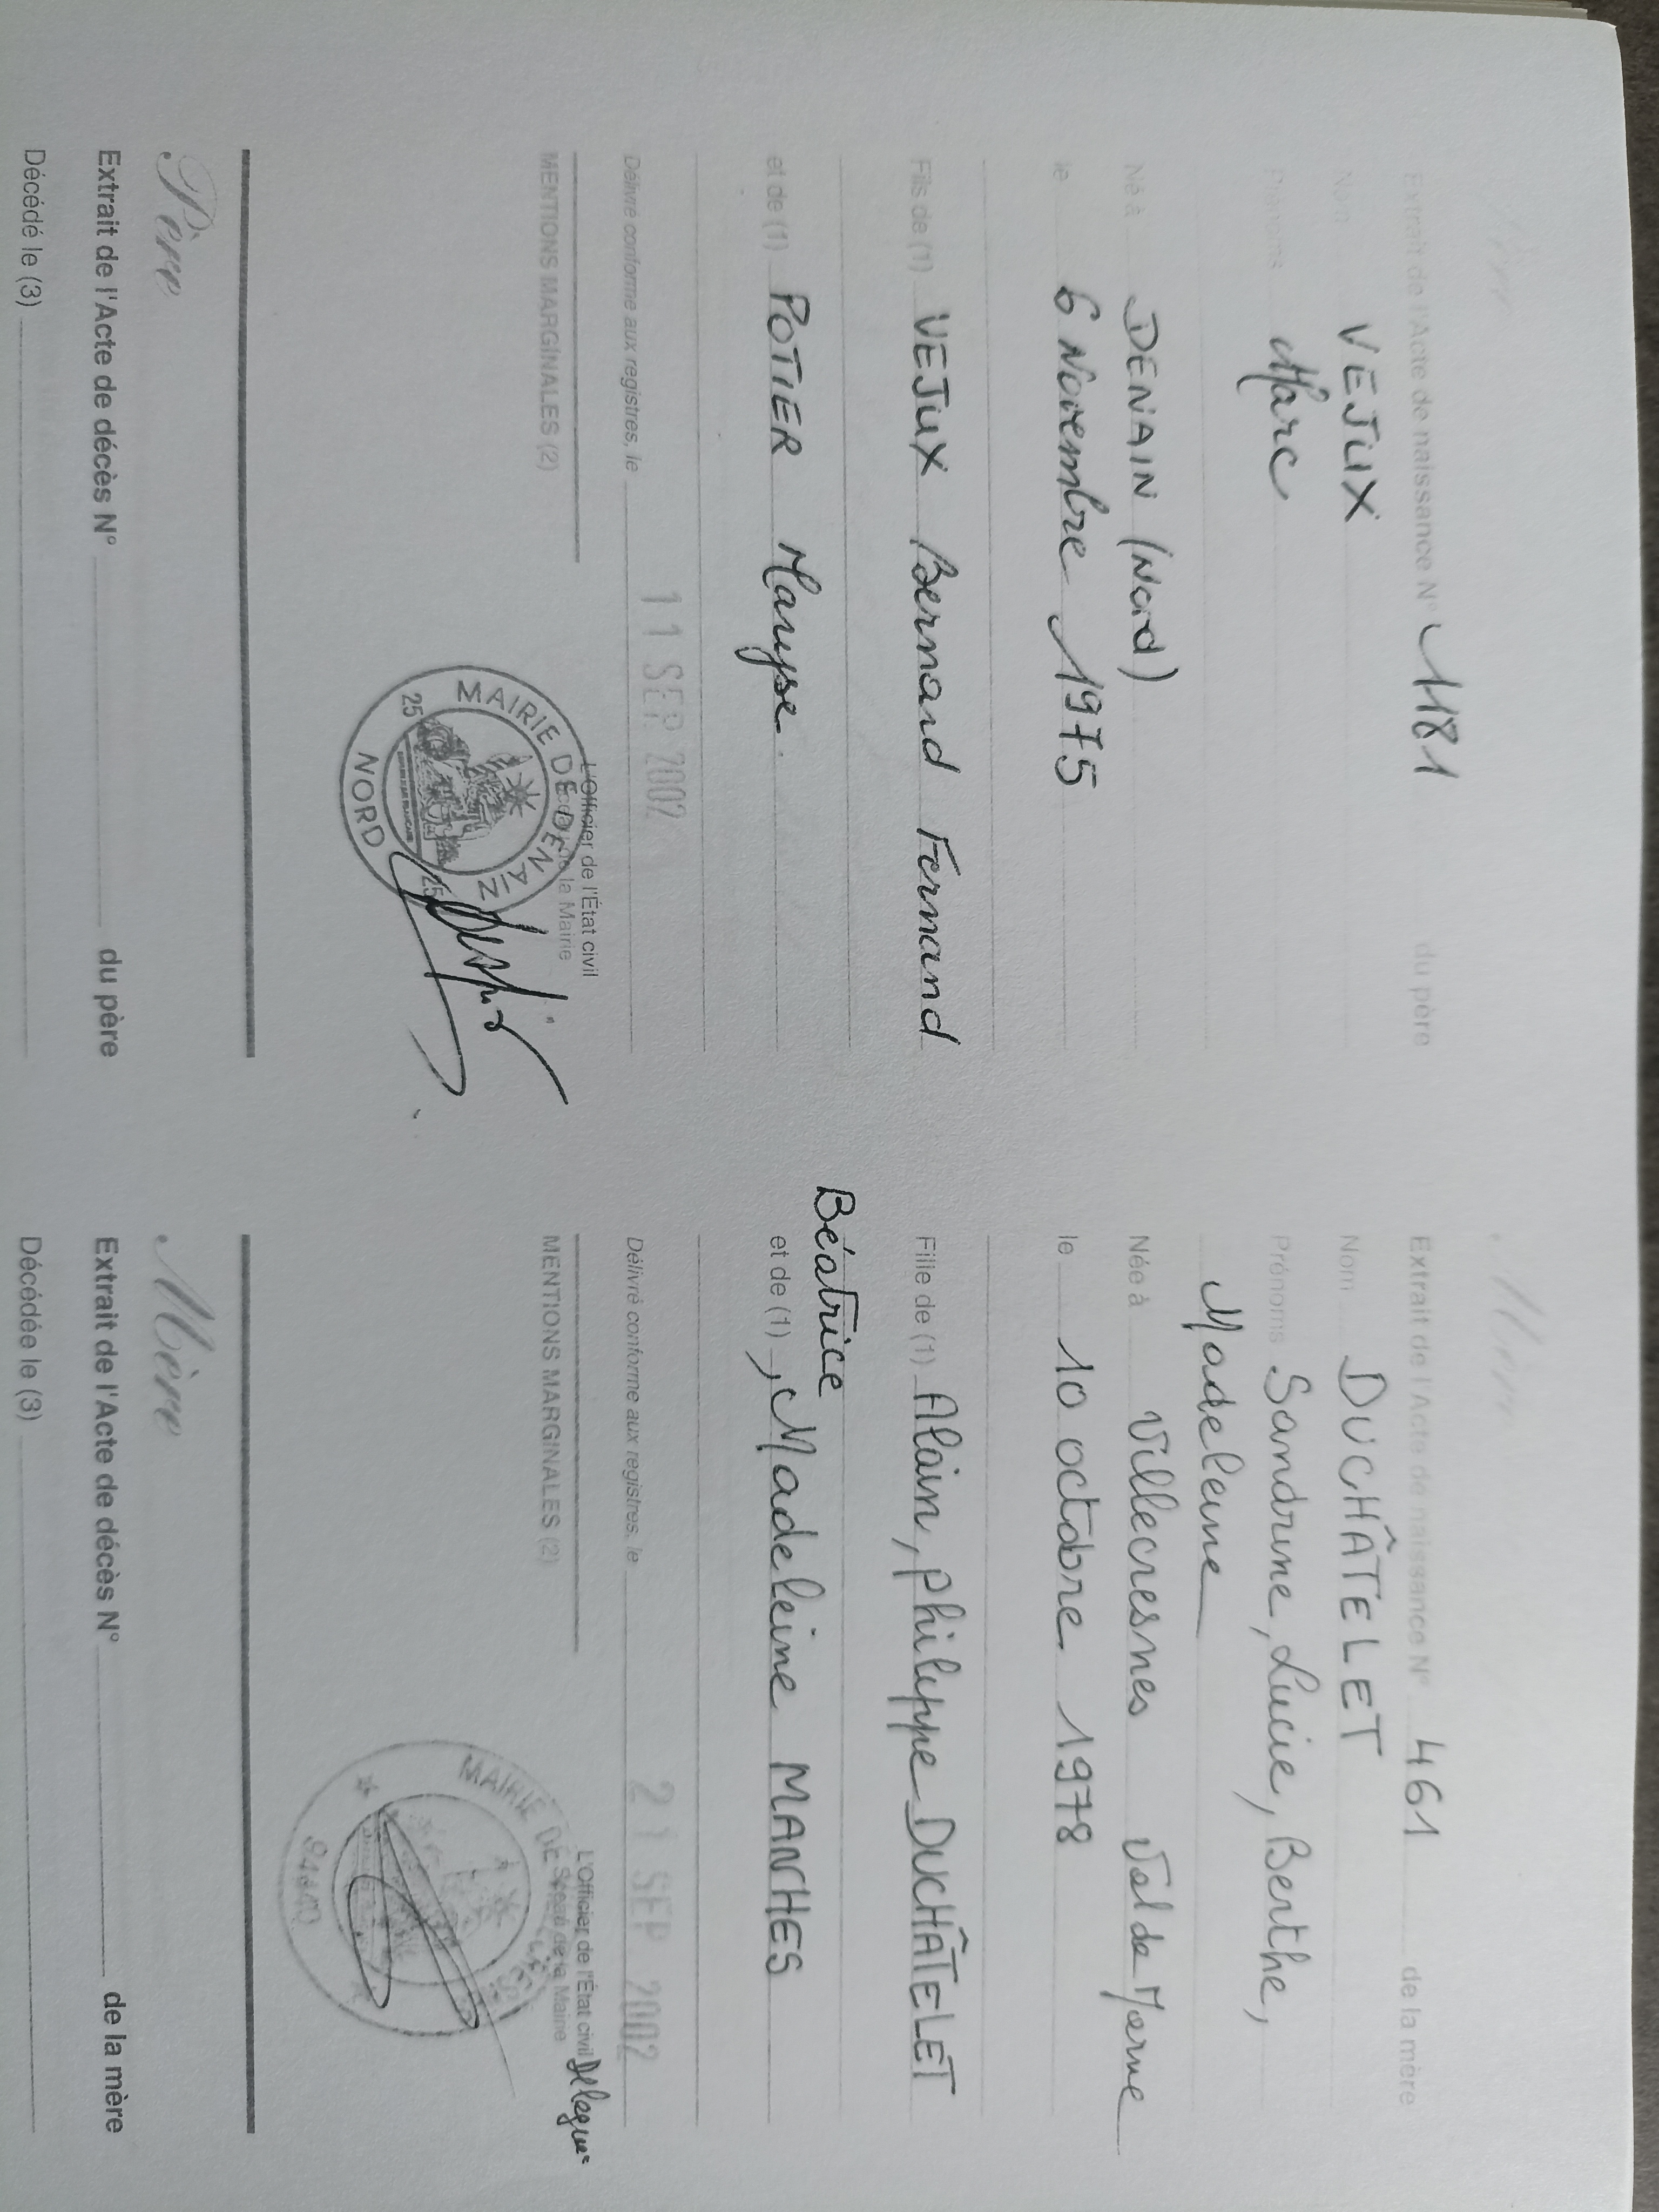 Père
Extrait de l'Acte de naissance N° 1181 du père
Nom VEJUX
Prénoms Marc
Né à DENAIN (Nord)
le 6 Novembre 1975
Fils de (1) VEJUX Bernard Fernand
et de (1) POTIER Maryse.
Délivré conforme aux registres, le 11 SEP 2002
MENTIONS MARGINALES (2)
L'Officier de l'État civil
Sceau de la Mairie
MAIRIE DE DENAIN
25 25
NORD
Père
Extrait de l'Acte de décès N° du père
Décédé le (3)
Mère
Extrait de l'Acte de naissance N° 461 de la mère
Nom DUCHÂTELET
Prénoms Sandrine, Lucie, Berthe,
Madeleine
Née à Villecresnes Val de Marne
le 10 octobre 1978
Fille de (1) Alain, Philippe DUCHÂTELET
Béatrice
et de (1) , Madeleine MANCHES
Délivré conforme aux registres, le 21 SEP. 2002
MENTIONS MARGINALES (2)
L'Officier de l'État civil Délégué
Sceau de la Mairie
MAIRIE DE
94440
Mère
Extrait de l'Acte de décès N° de la mère
Décédée le (3)